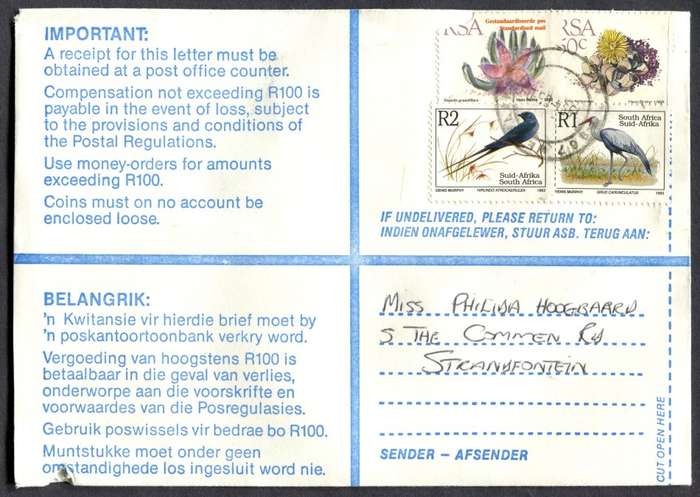 IMPORTANT:
A receipt for this letter must be
obtained at a post office counter.
Compensation not exceeding R100 is
payable in the event of loss, subject
to the provisions and conditions of
the Postal Regulations.
Use money-orders for amounts
exceeding R100.
Coins must on no account be
enclosed loose.
BELANGRIK:
'n Kwitansie vir hierdie brief moet by
'n poskantoortoonbank verkry word.
Vergoeding van hoogstens R100 is
betaalbaar in die geval van verlies,
onderworpe aan die voorskrifte en
voorwaardes van die Posregulasies.
Gebruik poswissels vir bedrae bo R100.
Muntstukke moet onder geen
omstandighede los ingesluit word nie.
RSA
Gestandaardiseerde pos
Standardised mail
RSA
R2
Suid-Afrika
South Africa
DENIS MURPHY HIRUNDO ATROCAERULEA 1993
R1
South Africa
Suid-Afrika
DENIS MURPHY GRUS CARUNCULATUS 1993
IF UNDELIVERED, PLEASE RETURN TO:
INDIEN ONAFGELEWER, STUUR ASB. TERUG AAN:
MISS PHILIDA HOOGBAARD
5 THE COMMEN RD
STRANDFONTEIN
SENDER – AFSENDER
CUT OPEN HERE